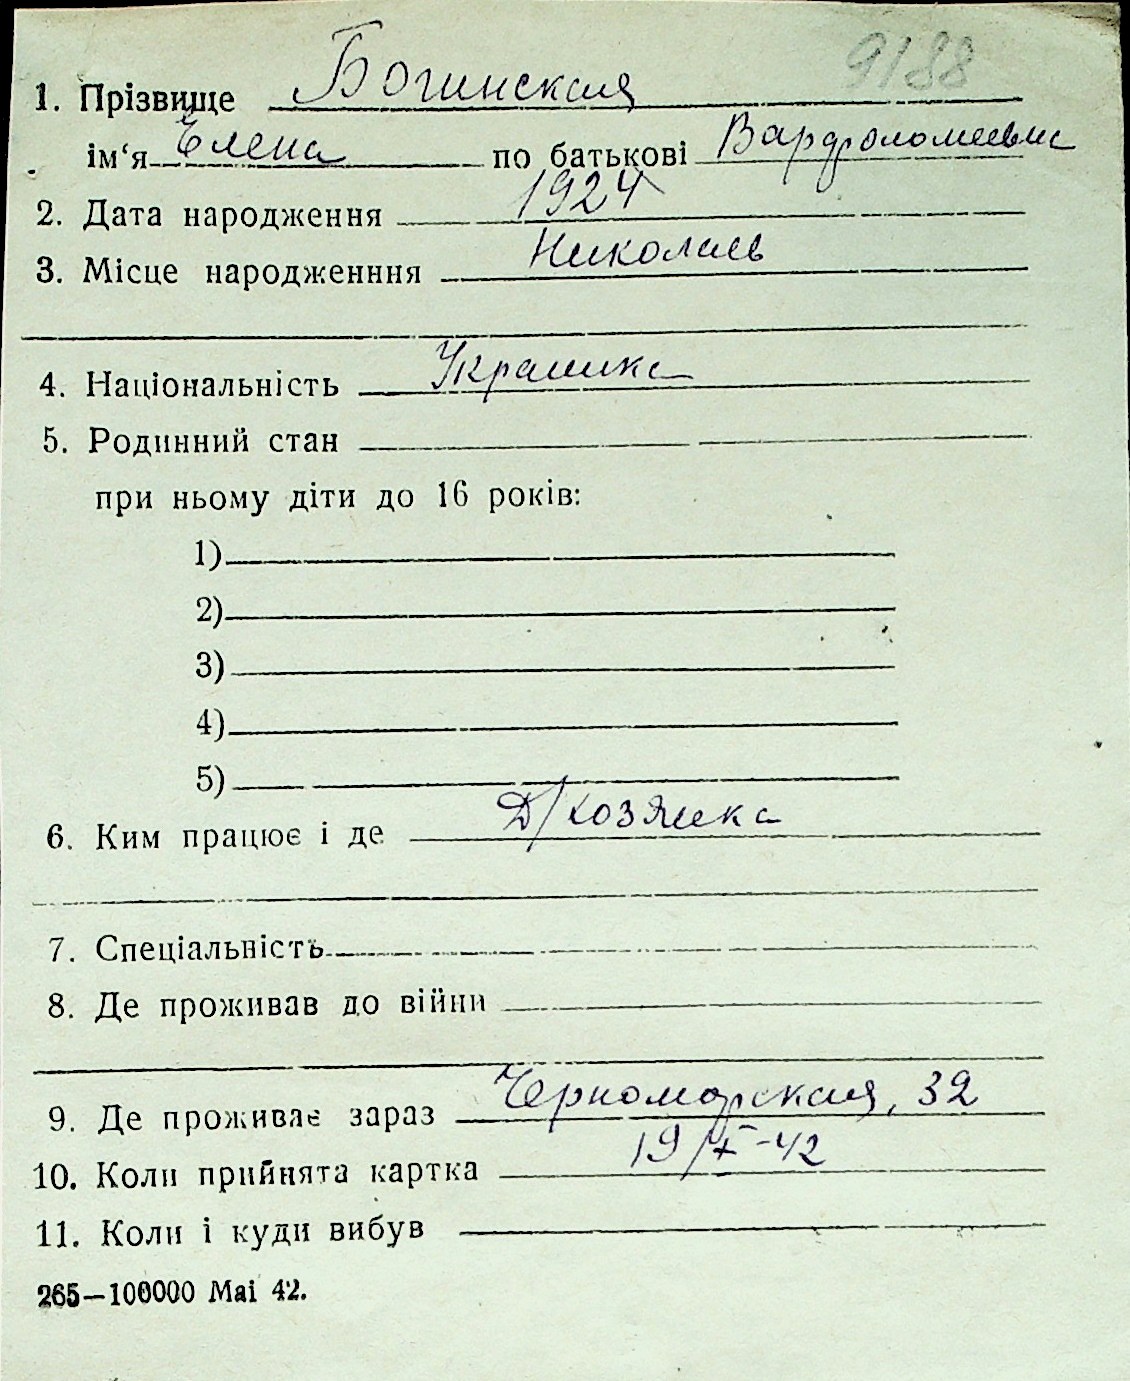 9188
1. Прізвище Богинская
ім‘я Елена по батькові Варфоломеевна
2. Дата народження 1924
3. Місце народженння Николаев
4. Національність Украинка
5. Родинний стан
при ньому діти до 16 років:
1)
2)
3)
4)
5)
6. Ким працює і де Д/хозяйка
7. Спеціальність
8. Де проживав до війни
9. Де проживає зараз Черноморская, 32
10. Коли прийнята картка 19/X-42
11. Коли і куди вибув
265—100000 Mai 42.